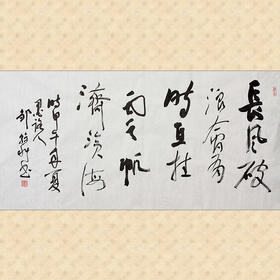 長風破
浪會有
時直挂
雲帆
濟滄海
時甲午年夏